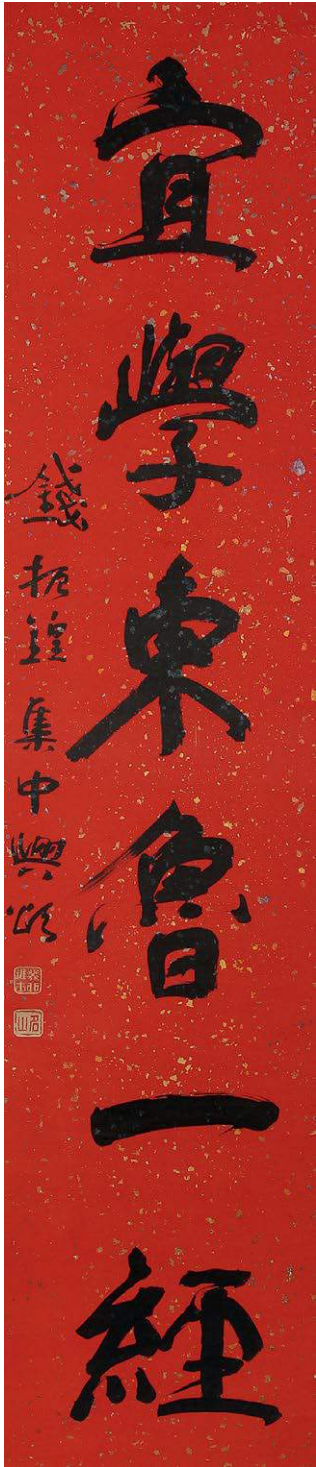 宜學東魯一經
錢振鍠集中興頌
名山